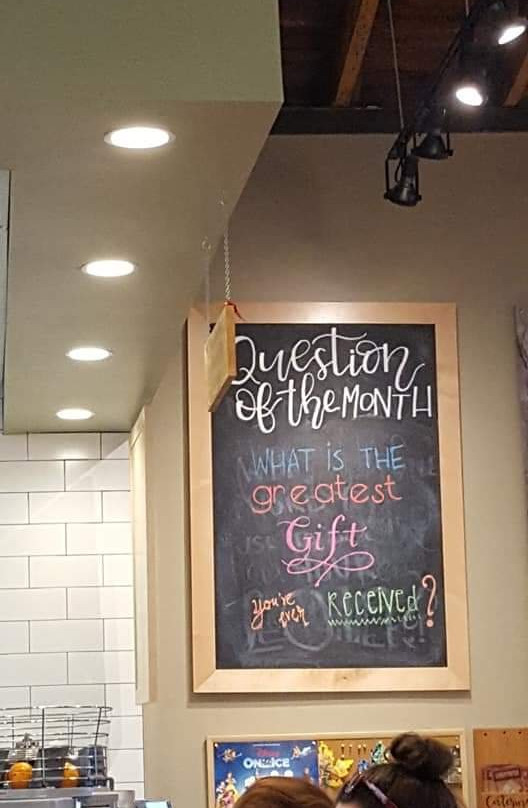 Question
of the MONTH
WHAT IS THE
greatest
Gift
you've
ever
Received?
Disney
ON ICE